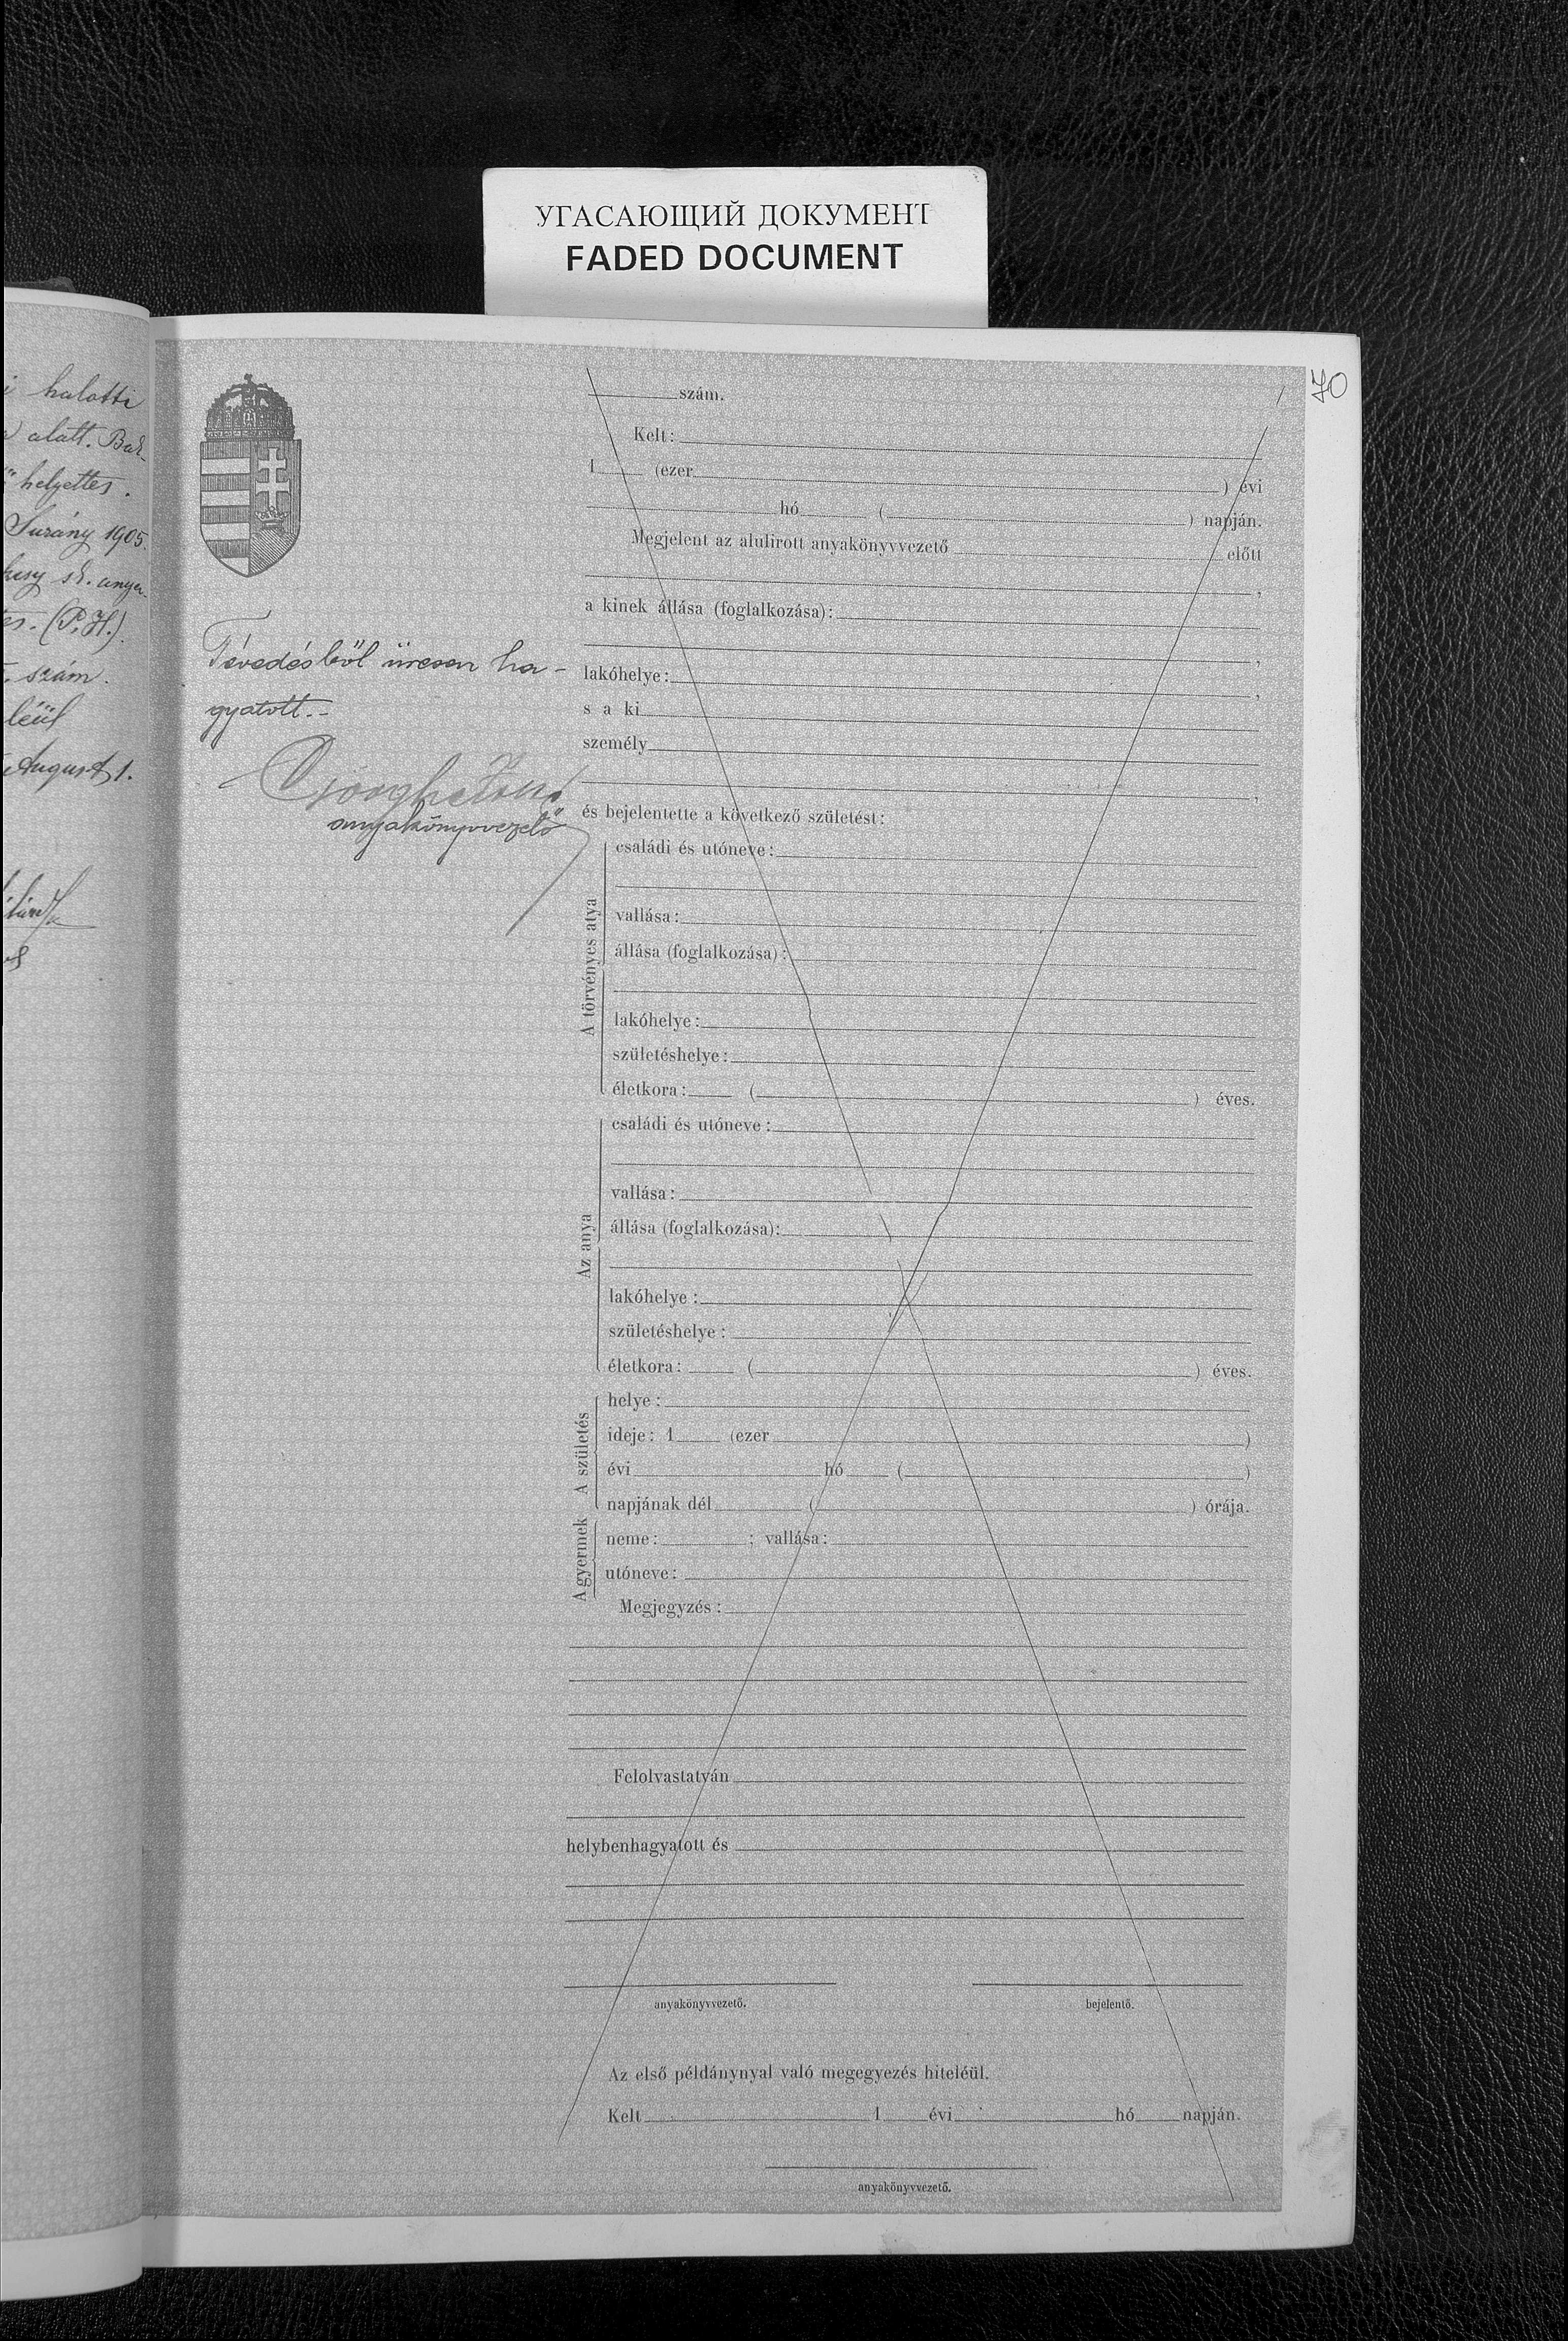 УГАСАЮЩИЙ ДОКУМЕНТ
FADED DOCUMENT
70
halotti
alatt. Bak-
helyettes.
Surány 1905.
sk. anya-
(P.H.).
szám.
August 1.
Tévedésből üresen ha-
gyatott.-
anyakönyvvezető
szám.
Kelt:
1 (ezer ) évi
hó ( ) napján.
Megjelent az alulirott anyakönyvvezető előtt
,
a kinek állása (foglalkozása):
,
lakóhelye: ,
s a ki
személy
,
és bejelentette a következő születést:
A törvényes atya
családi és utóneve:
vallása:
állása (foglalkozása):
lakóhelye:
születéshelye:
életkora: ( ) éves.
Az anya
családi és utóneve:
vallása:
állása (foglalkozása):
lakóhelye:
születéshelye:
életkora: ( ) éves.
A születés
helye:
ideje: 1 (ezer )
évi hó ( )
napjának dél ( ) órája.
A gyermek
neme: ; vallása:
utóneve:
Megjegyzés:
Felolvastatván
helybenhagyatott és
anyakönyvvezető. bejelentő.
Az első példánynyal való megegyezés hiteléül.
Kelt 1 évi hó napján.
anyakönyvvezető.